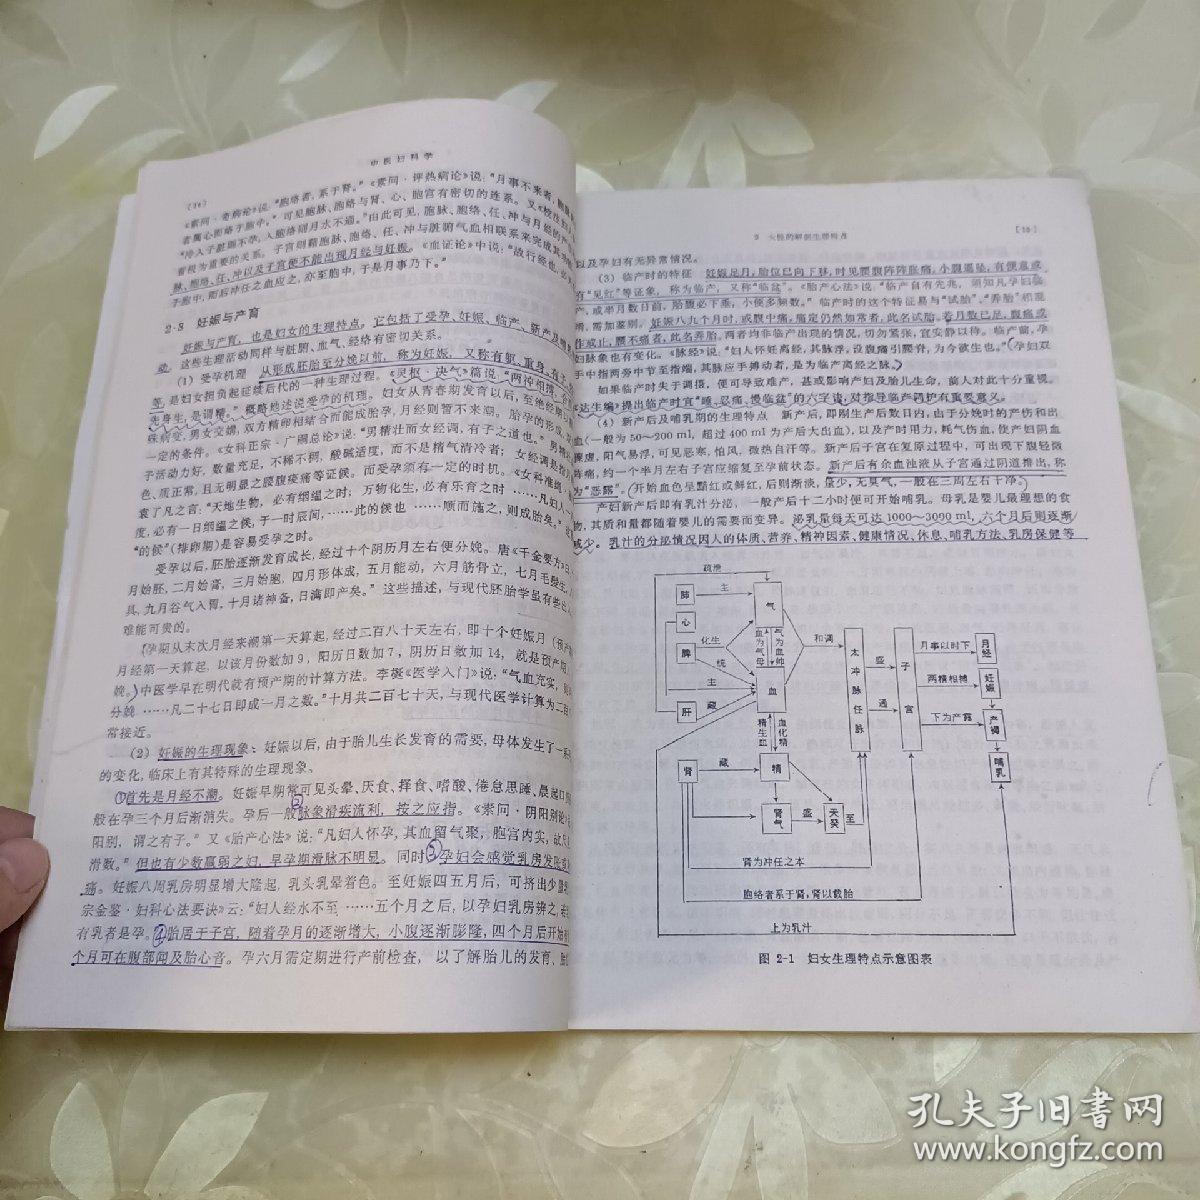 中医妇科学
《素问·奇病论》说:“胞络者,系于肾。”《素问·评热病论》说:“月事不来者,胞脉
者属心而络于胞中。”可见胞脉、胞络与肾、心、胞宫有密切的连系。
脉、胞络、任、冲以及子宫便不能出现月经与妊娠。《血证论》中说:“故行经也,
子胞中,而后冲任之血应之,亦至胞中,于是月事乃下。”
2·3 妊娠与产育
妊娠与产育,也是妇女的生理特点。它包括了受孕、妊娠、临产、新产及哺乳
动。这些生理活动同样与脏腑、血气、经络有密切关系。
(1) 受孕机理 从形成胚胎至分娩以前,称为妊娠,又称有躯、重身、有子
等,是妇女拥负起延续后代的一种生理过程。《灵枢·决气》篇说:“两神相搏,合
先身生,是谓精。”概略地述说受孕的机理。妇女从青春期发育以后,至绝经期
殊病变,男女交媾,双方精卵相结合而能成胎孕,月经则暂不来潮。胎孕的形成,
一定的条件。《女科正宗·广嗣总论》说:“男精壮而女经调,有子之道也。”
子活动力好,数量充足,不稀不稠,酸碱适度,而不是精气清冷者;女经调是指月
色、质正常,且无明显之腰腹痠痛等证候。而受孕须有一定的时机。《女科准绳·
袁了凡之言:“天地生物,必有絪缊之时;万物化生,必有乐育之时……凡妇人一
度,必有一日絪缊之候,于一时辰间,……此的候也……顺而施之,则成胎矣。”
“的候”(排卵期)是容易受孕之时。
受孕以后,胚胎逐渐发育成长,经过十个阴历月左右便分娩。唐《千金要方》
月始胚,二月始膏,三月始胞,四月形体成,五月能动,六月筋骨立,七月毛髮生,
具,九月谷气入胃,十月诸神备,日满即产矣。”这些描述,与现代胚胎学虽有些
难能可贵的。
孕期从末次月经来潮第一天算起,经过二百八十天左右,即十个妊娠月(预产
月经第一天算起,以该月份数加9,阳历日数加7,阴历日数加14,就是预产期
娩。)中医学早在明代就有预产期的计算方法。李梴《医学入门》说:“气血充实,
分娩……凡二十七日即成一月之数。”十月共二百七十天,与现代医学计算为二百
常接近。
(2) 妊娠的生理现象:妊娠以后,由于胎儿生长发育的需要,母体发生了一系
的变化,临床上有其特殊的生理现象。
①首先是月经不潮。妊娠早期常可见头晕、厌食、择食、嗜酸、倦怠思睡、晨起口
般在孕三个月后渐消失。孕后一般②脉象滑疾流利,按之应指。《素问·阴阳别论》
阳别,谓之有子。”又《胎产心法》说:“凡妇人怀孕,其血留气聚,胞宫内实,故
滑数。”但也有少数羸弱之妇,早孕期滑脉不明显。同时③孕妇会感觉乳房发胀或
痛。妊娠八周乳房明显增大隆起,乳头乳晕着色。至妊娠四五月后,可挤出少量
宗金鉴·妇科心法要诀》云:“妇人经水不至……五个月之后,以孕妇乳房辨之,
有乳者是孕。④胎居于子宫,随着孕月的逐渐增大,小腹逐渐膨隆,四个月后开始
个月可在腹部闻及胎心音。孕六月需定期进行产前检查,以了解胎儿的发育、
2 女性的解剖生理特点
以及孕妇有无异常情况。
(3) 临产时的特征 妊娠足月,胎位已向下移,时见腰腹阵阵胀痛,小腹重坠,有便意或
有“见红”等证象,称为临产,又称“临盆”。《胎产心法》说:“临产自有先兆,须知凡孕妇临
产,或半月数日前,胎腹必下垂,小便多频数。”临产时的这个特征易与“试胎”、“弄胎”相混
淆,需加鉴别。妊娠八九个月时,或腹中痛,痛定仍然如常者,此名试胎。若月数已足,腹痛或
作或止,腰不痛者,此名弄胎。两者均非临产出现的情况,切勿紧张,宜安静以待。临产前,孕
妇脉象也有变化。《脉经》说:“妇人怀妊离经,其脉浮,设腹痛引腰脊,为今欲生也。”(孕妇双
手中指两旁中节至指端,其脉应手搏动者,是为临产离经之脉。)
如果临产时失于调摄,便可导致难产,甚或影响产妇及胎儿生命,前人对此十分重视。
《达生编》提出临产时宜“睡、忍痛、慢临盆”的六字诀,对指导临产调护有重要意义。
(4) 新产后及哺乳期的生理特点 新产后,即刚生产后数日内,由于分娩时的产伤和出
血(一般为50~200ml,超过400ml为产后大出血),以及产时用力,耗气伤血,使产妇阴血
骤虚,阳气易浮,可见恶寒,怕风,微热自汗等。新产后子宫在复原过程中,可出现下腹轻微
阵痛,约一个半月左右子宫应缩复至孕前状态。新产后有余血浊液从子宫通过阴道排出,称
为“恶露”。(开始血色呈黯红或鲜红,后则渐淡,量少,无臭气,一般在三周左右干净。)
产妇新产后即有乳汁分泌,一般产后十二小时便可开始哺乳。母乳是婴儿最理想的食
物,其质和量都随着婴儿的需要而变异。泌乳量每天可达1000~3090ml,六个月后则逐渐
减少。乳汁的分泌情况因人的体质、营养、精神因素、健康情况、休息、哺乳方法、乳房保健等
疏泄
肺 主 气
心
化生
脾 统
主
肝 藏 血
血为气母
气为血帅
和调
精生血
血化精
肾 藏 精
肾气 盛 天癸 至
太冲脉任脉
盛
通
子宫
月事以时下 月经
两精相搏 妊娠
下为产育 产褥
哺乳
肾为冲任之本
胞络者系于肾,肾以载胎
上为乳汁
图 2-1 妇女生理特点示意图表
孔夫子旧书网
www.kongfz.com